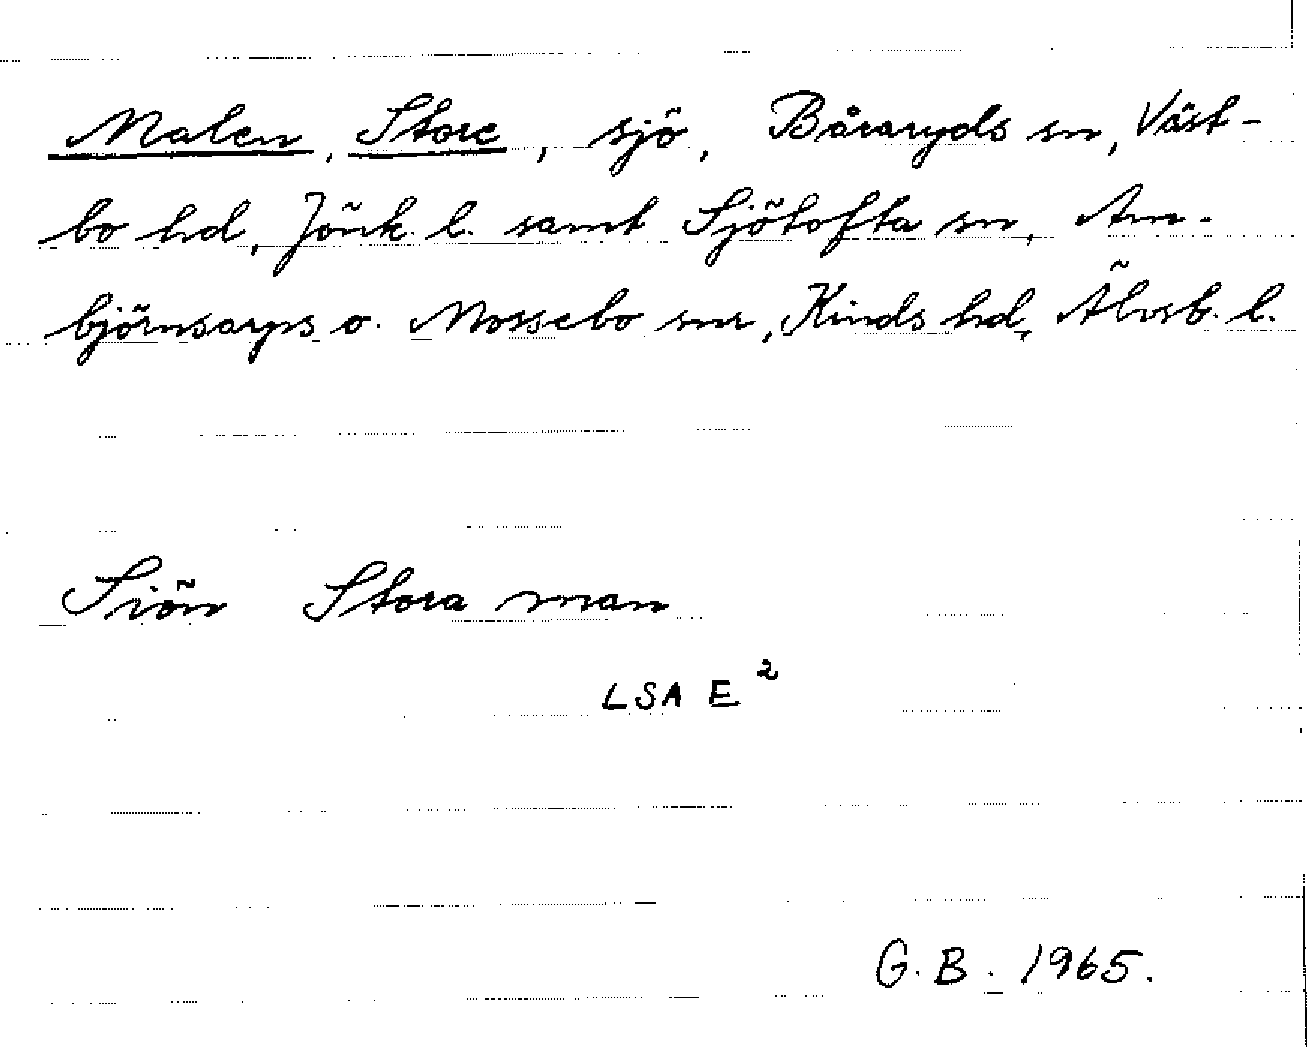 Malen, Store, sjö, Båraryds sn, Väst-
bo hd, Jönk. l. samt Sjötofta sn, Am-
björnsarps o. Mossebo snr, Kinds hd, Älvsb. l.
Siön Stora man
LSA E²
G. B. 1965.